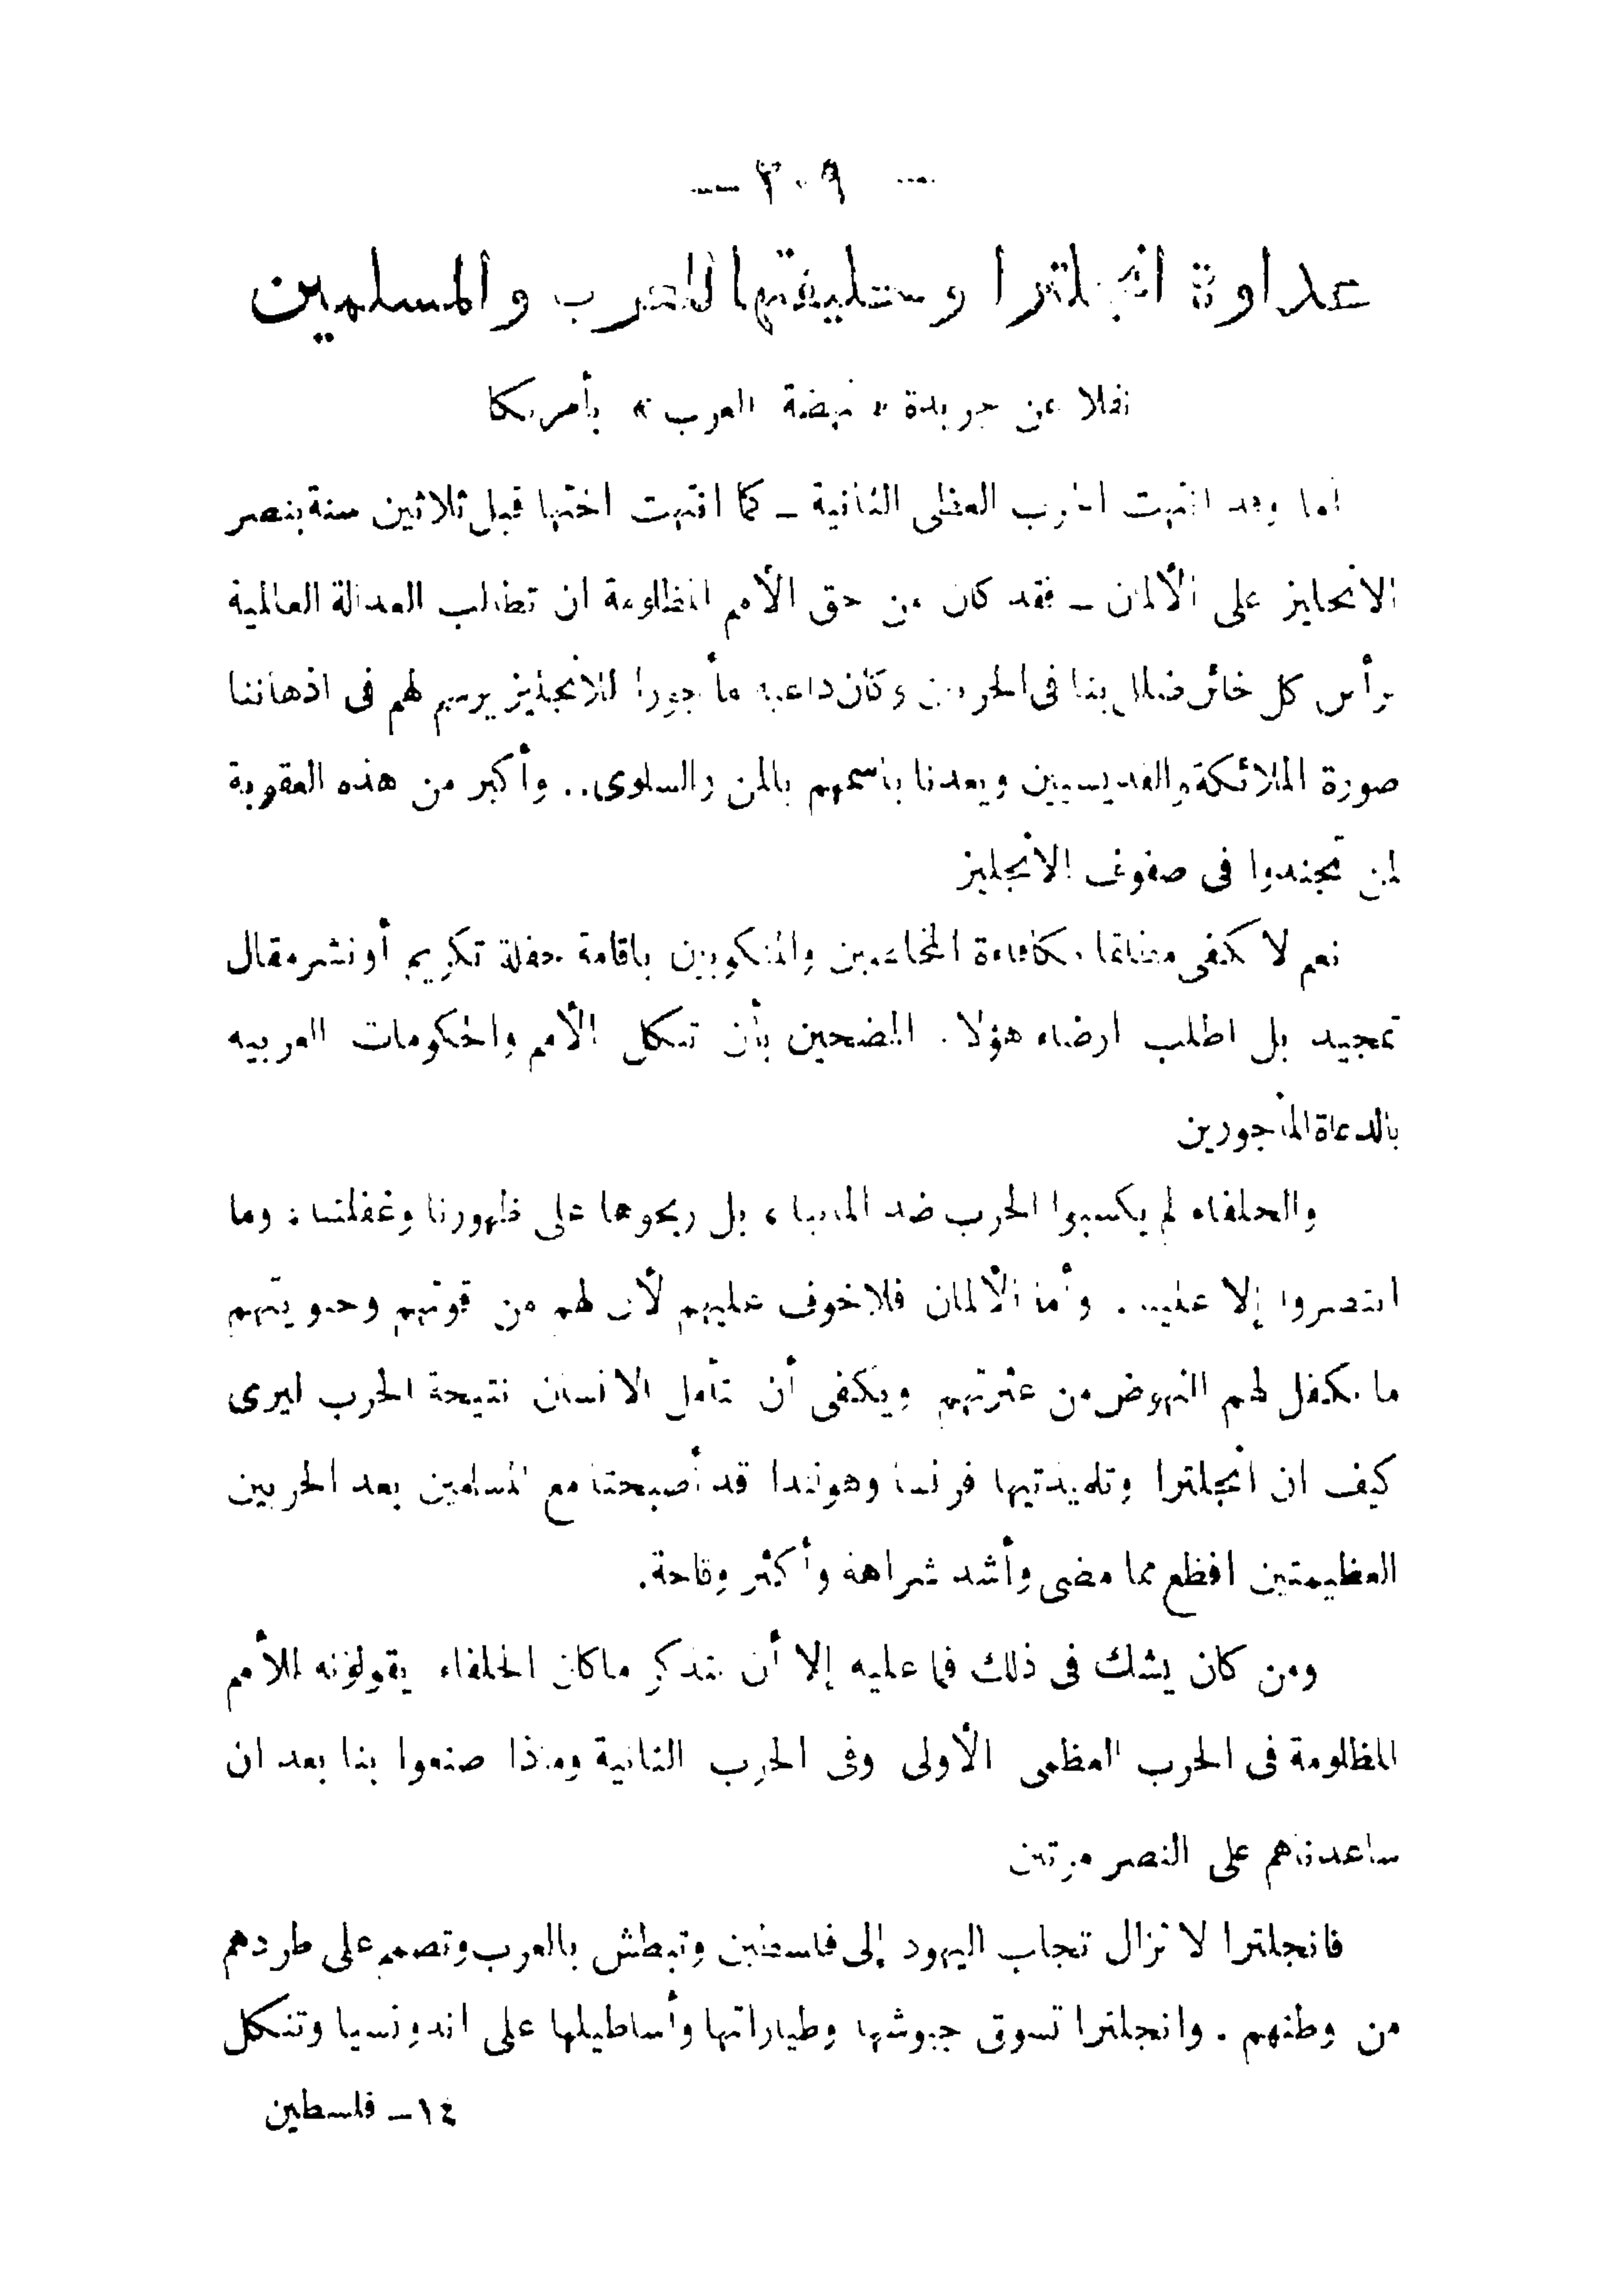 — ٢٠٩ —
عداوة انجلترا وحليفتها للعرب والمسلمين
نقلا عن جريدة « نهضة العرب » بأمريكا
أما وقد انتهت الحرب العظمى الثانية – كما انتهت اختها قبل ثلاثين سنة بنصر
الانجليز على الألمان – فقد كان من حق الأمم المظلومة ان تطلب العدالة العالمية
برأس كل خائن ضلل بنا فى الحربين وكان داعية مأجورا للانجليز يرسم لهم فى اذهاننا
صورة الملائكة والقديسيين ويعدنا باسمهم بالمن والسلوى.. وأكبر من هذه العقوبة
لمن تجندوا فى صفوف الانجليز
نعم لا تكفى مكافاءة المخلصين والمنكوبين باقامة حفلة تكريم أو نشر مقال
تمجيد بل اطلب ارضاء هؤلاء المضحين بأن تنكل الأمم والحكومات العربيه
بالدعاة المأجورين
والحلفاء لم يكسبوا الحرب ضد المانيا ، بل ربحوها على ظهورنا وغفلتنا ، وما
انتصروا إلا علينا . وأما الألمان فلا خوف عليهم لأن لهم من قوتهم وحيويتهم
ما يكفل لهم النهوض من عثرتهم ويكفى أن تأمل الانسان نتيجة الحرب ليرى
كيف ان انجلترا وتلميذتيها فرنسا وهولندا قد أصبحتا مع المسلمين بعد الحربين
العظيمتين افظع مما مضى وأشد شراهة وأكثر وقاحة.
ومن كان يشك فى ذلك فما عليه إلا أن يتذكر ماكان الحلفاء يقولونه للأمم
المظلومة فى الحرب العظمى الأولى وفى الحرب الثانية وماذا صنعوا بنا بعد ان
ساعدناهم على النصر مرتين
فانجلترا لا تزال تجلب اليهود إلى فلسطين وتبطش بالعرب وتصمم على طردهم
من وطنهم . وانجلترا تسوق جيوشها وطياراتها وأساطيلها على اندونسيا وتنكل
١٤ – فلسطين